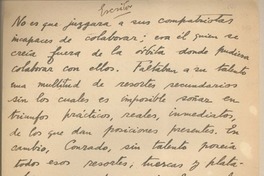 Escritor
No es que juzgara a sus compatriotas
incapaces de colaborar: era él quien se
creía fuera de la órbita donde pudiera
colaborar con ellos. Faltaban a su talento
una multitud de resortes secundarios
sin los cuales es imposible soñar en
triunfos prácticos, reales, inmediatos,
de los que dan posiciones presentes. En
cambio, Conrado, sin talento poseía
todos esos resortes; tuercas y plata-